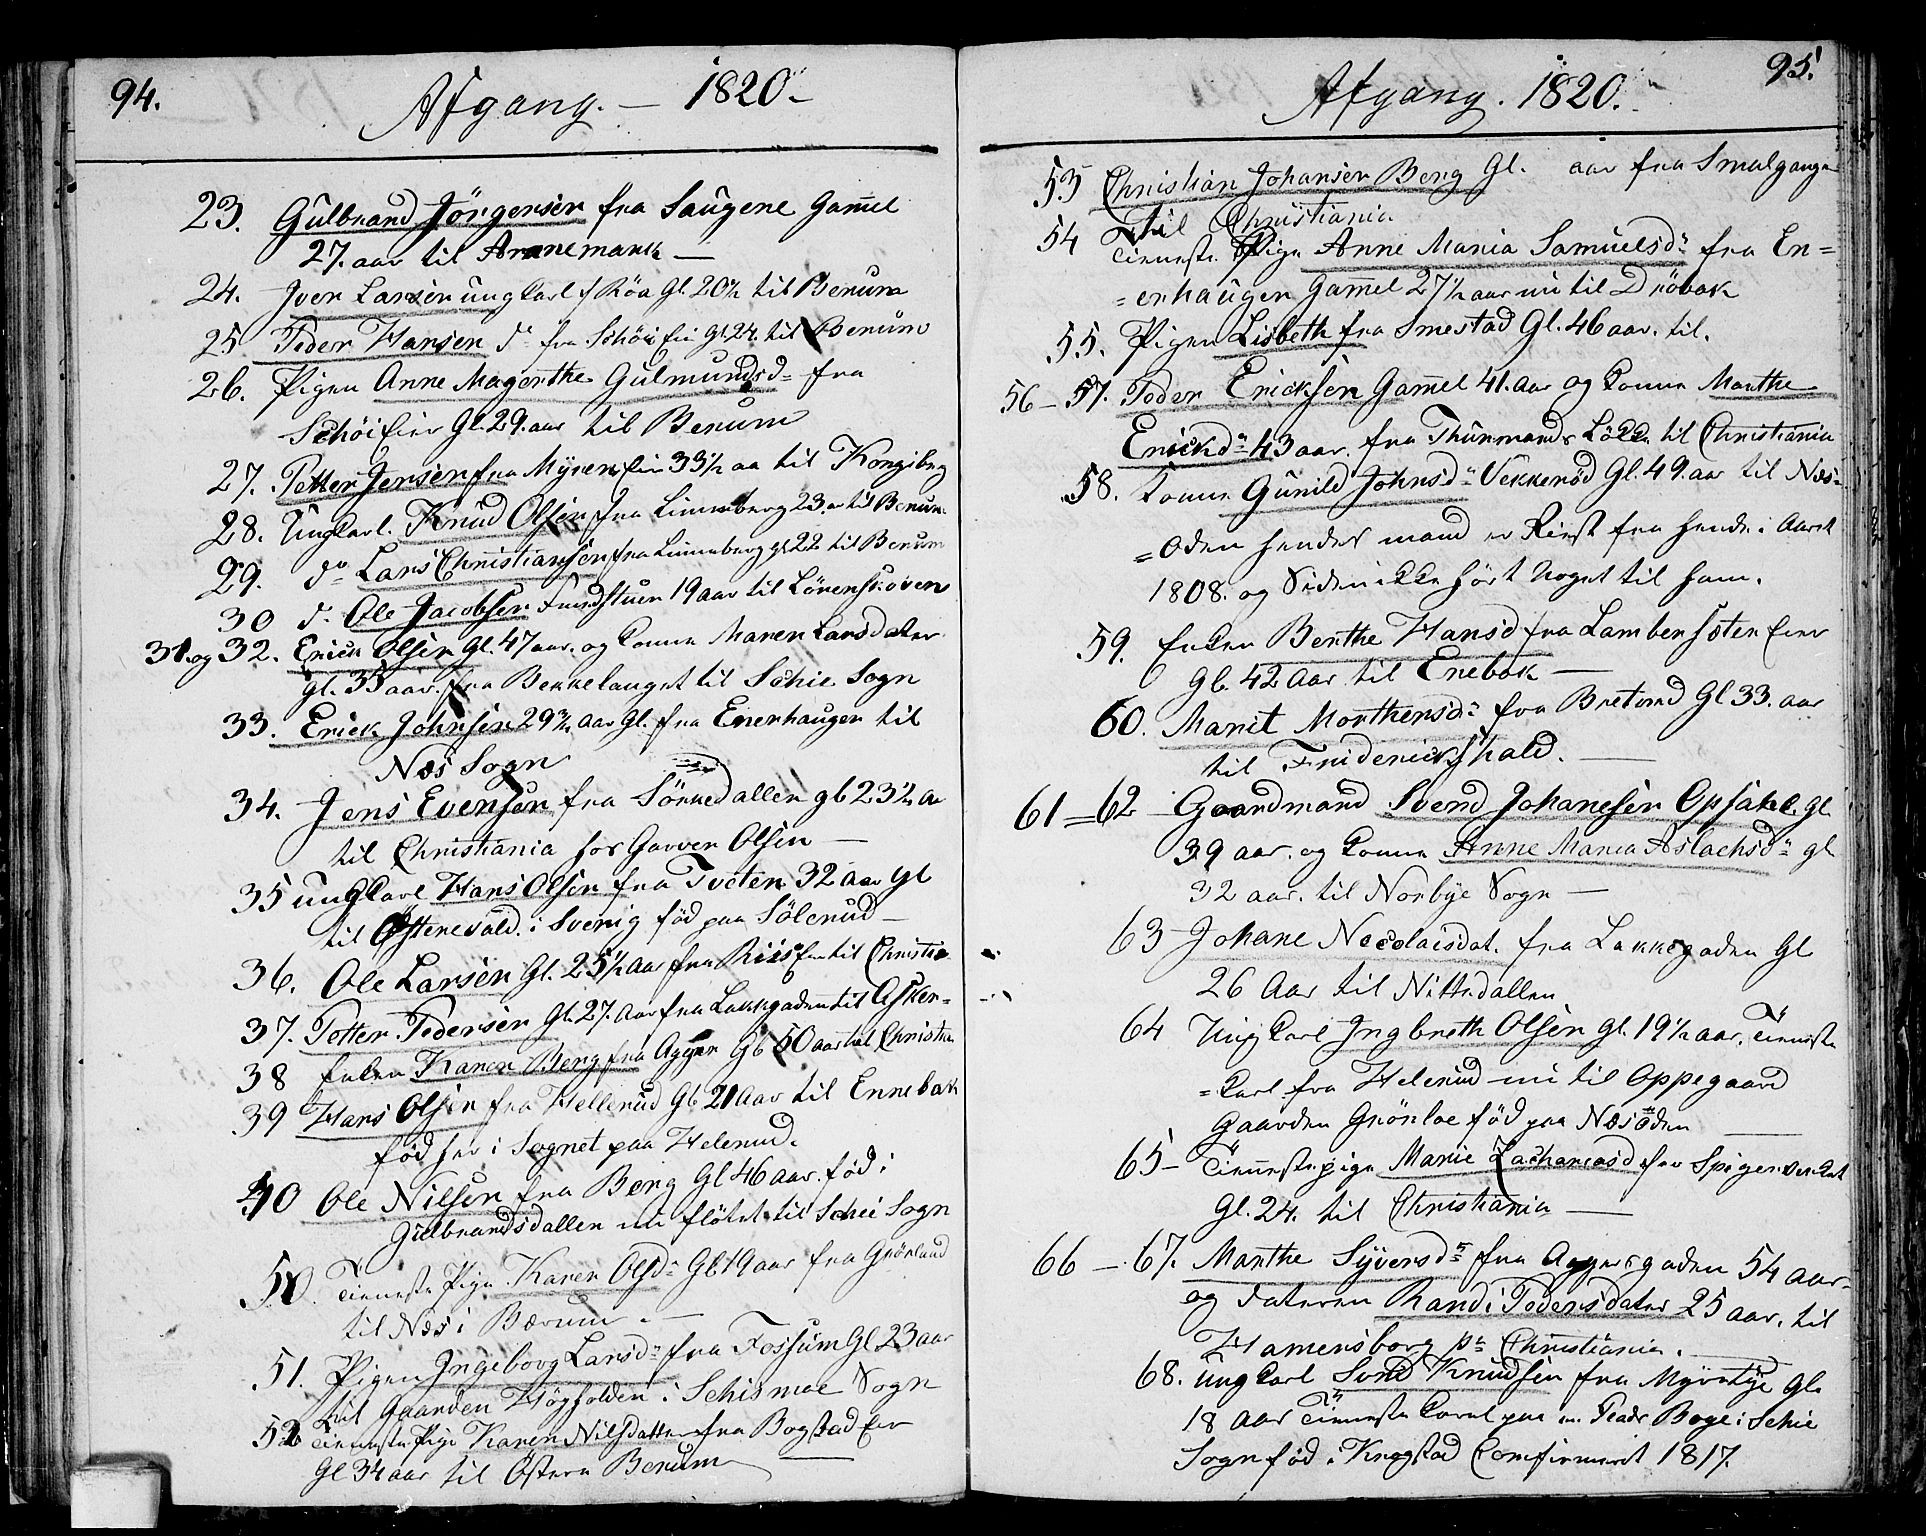 94.
Afgang. — 1820.
23. Gulbrand Jörgensen fra Saugene Gamel
27. aar til Annemark —
24. Iver Larsen ungkarl f Röa Gl. 20½ til Berum
25 Peder Hansen do fra Schöi Eie Gl. 24. til Berum
26. Pigen Anne Magrethe Gulmundsd= fra
Schöi Eier Gl. 29. aar til Berum
27. Petter Jensen fra Myren Eie 33½ aa til Kongsberg
28. Ungkarl. Knud Olsen fra Linneberg 23. ar til Berum
29. do Lars Christiansen fra Linneberg gl 22 til Berum
30 d. Ole Jacobsen Fundstuen 19 aar til Lörenskoven
31. og 32. Erick Olsen Gl. 47 aar. og Konne Maren Larsdater
gl. 35 aar. fra Bekkelauget til Schie Sogn
33. Erick Johnsen 29¾ aar Gl. fra Enerhaugen til
Næs Sogn
34. Jens Evensen fra Sörkedallen gl 23½ a
til Christiania hos Garver Olsen —
35 ungkarl Hans Olsen fra Tveten 32 aar gl
til Östenevald. i Sverig föd paa Sölerud —
36. Ole Larsen Gl. 25½ aar fra Riis Eie til Christia
37. Petter Pedersen Gl. 27. aar fra Lakkgaden til Asker=
38 Enken Karen Berg fra Agger Gl 50 aar til Christia
39 Hans Olsen fra Hellerud Gl 21 aar til Ennebak
föd her i Sognet paa Helerud.
40 Ole Nilsen fra Berg Gl 46 aar. föd i
Gulbrandsdallen nu flötet til Schie Sogn
50 Tienneste Pige Karen Olsd= Gl 19 aar fra Grönland
til Næs i Bærum. —
51. Pigen Ingeborg Larsd= fra Fossum Gl 23 aar
til Gaarden Högholden i Schismoe Sogn
52 Tienneste Pige Karen Nilsdatter fra Bogstad Eier
Gl 34 aar til Östern Berum
95.
Afgang. 1820.
53 Christian Johansen Berg Gl. aar fra Smalgange
til Christiania
54 Tienneste Pige Anne Maria Samuelsd= fra En=
=erhaugen Gamel 27½ aar nu til Dröbak
55. Pigen Lisbeth fra Smestad Gl. 46 aar. til.
56 — 57. Peder Ericksen Gamel 41. aar og Konne Marthe
Erickd= 43 aar. fra Thurmands Lökke til Christiania
58. Konne Gunild Johnsd= Vekkeröd Gl. 49. aar til Næs=
=oden hendes mand er Reist fra hende i Aaret
1808. og Siden ikke hört noget til ham.
59. Enken Berthe Hansd fra Lambersæter Eier
gl. 42 aar til Enebak —
60. Marit Morthensd= fra Bretved Gl 33. aar
til Friderickshald. —
61 = 62 Gaardmand Svend Johanesen Opsahl. gl
39 aar. og Konne Anne Maria Aslachsd= gl
32 aar. til Norbye Sogn —
63 Johane Necolaisdat. fra Lakkegaden Gl
26 Aar til Nittedallen
64 Ung Carl Ingbreth Olsen gl. 19½ aar, Tienneste
=Carl fra Helerud nu til Oppegaard
Gaarden Grönloe föd paa Næsöden —
65 — Tienneste pige Marie Zachariasd fra Spigerverket
Gl. 24. til Christiania —
66 — 67. Marthe Syversd= fra Aggersgaden 54 aar.
og dateren Randi Pedersdater 25 aar. til
Hamersborg pr Christiania. —
68. ungkarl Svend Knudsen fra Gl.
18 aar Tienneste Carl paa Boge i Schie
Sogn föd i Krogstad Comfirmeret 1817.